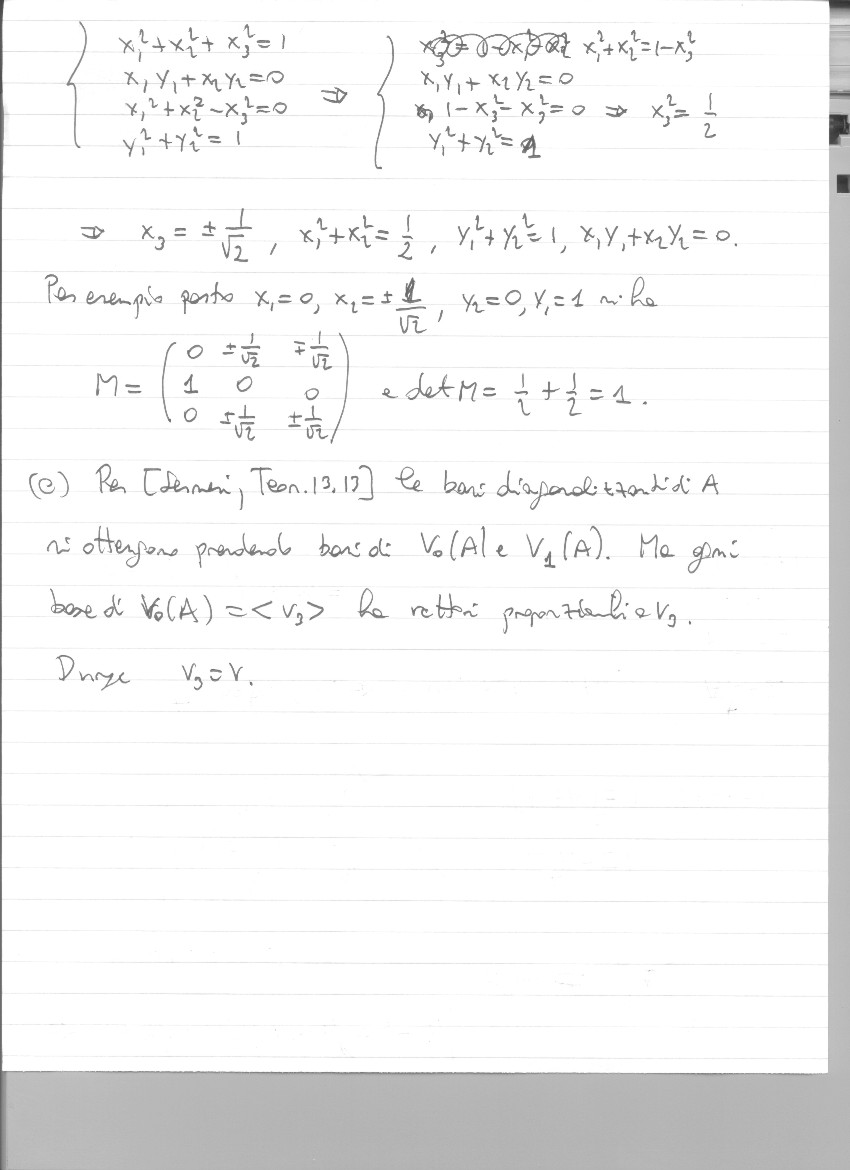 x₁² + x₂² + x₃² = 1
x₁y₁ + x₂y₂ = 0
x₁² + x₂² - x₃² = 0
y₁² + y₂² = 1
⇒
x₁² + x₂² = 1 - x₃²
x₁y₁ + x₂y₂ = 0
1 - x₃² - x₃² = 0 ⇒ x₃² = 1/2
y₁² + y₂² = 1
⇒ x₃ = ± 1/√2, x₁² + x₂² = 1/2, y₁² + y₂² = 1, x₁y₁ + x₂y₂ = 0.
Per esempio posto x₁ = 0, x₂ = ± 1/√2, y₂ = 0, y₁ = 1 si ha
M = ( 0 ±1/√2 ∓1/√2
1 0 0
0 ±1/√2 ±1/√2 ) e det M = 1/2 + 1/2 = 1.
(e) Per [Sernesi, Teor. 13.13] le basi diagonalizzanti di A
si ottengono prendendo basi di V₀(A) e V₁(A). Ma ogni
base di V₀(A) = <v₃> ha vettori proporzionali a v₃.
Dunque v₃ = v.